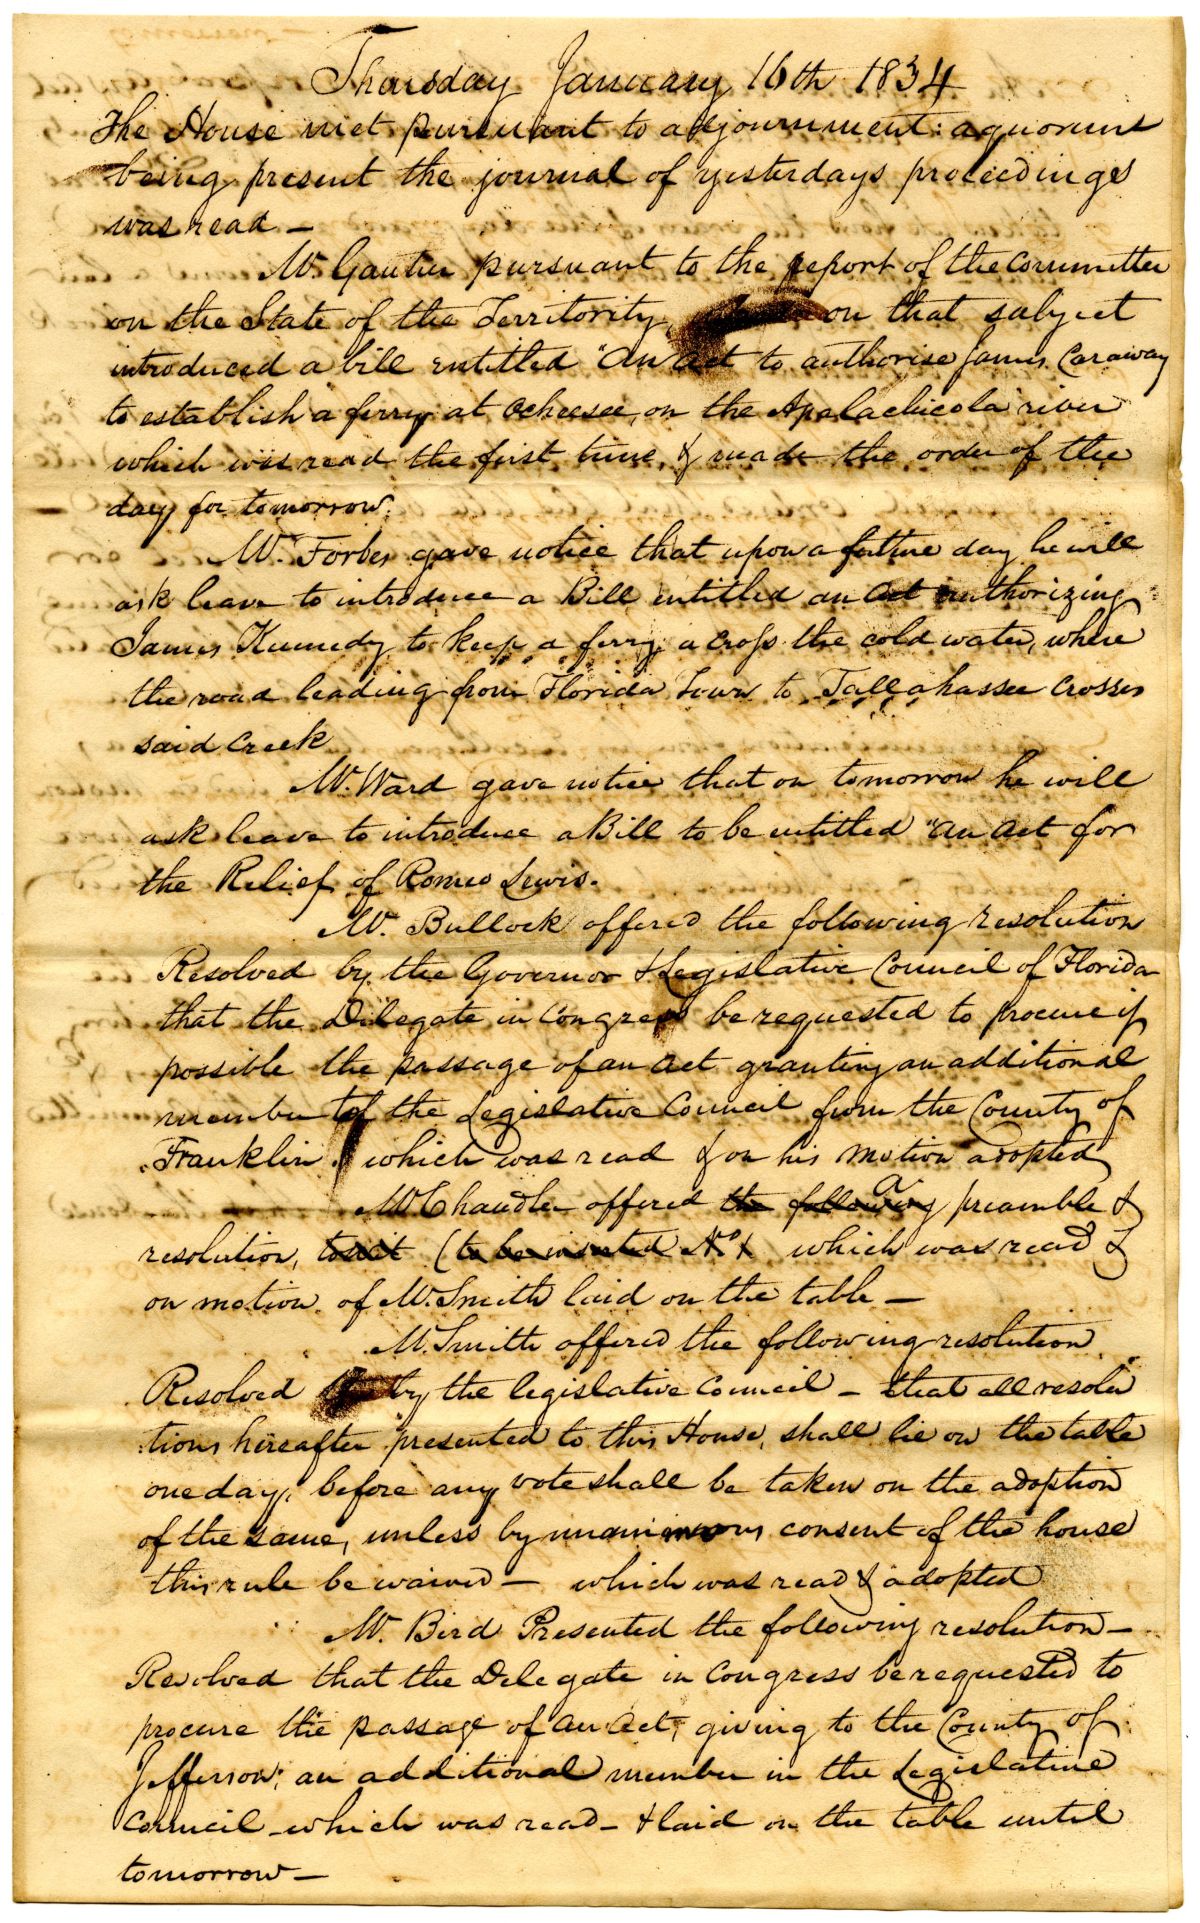 Thursday January 16th 1834
The House met pursuant to adjournment: a quorum
being present the journal of yesterdays proceedings
was read —
Mr. Gautier pursuant to the report of the committee
on the State of the Territory, on that subject
introduced a bill entitled "An Act to authorise James Caraway
to establish a ferry at Ocheesee, on the Apalachicola river
which was read the first time, & made the order of the
day for tomorrow.
Mr. Forbes gave notice that upon a future day he will
ask leave to introduce a Bill entitled an Act authorizing
James Kennedy to keep a ferry across the cold water, where
the road leading from Florida Town to Tallahassee Crosses
said Creek
Mr. Ward gave notice that on tomorrow he will
ask leave to introduce a Bill to be entitled "An Act for
the Relief of Romeo Lewis.
Mr. Bullock offered the following resolution
Resolved by the Governor & Legislative Council of Florida
that the Delegate in Congress be requested to procure if
possible the passage of an act granting an additional
member to the Legislative Council from the County of
Franklin. which was read & on his motion adopted
Mr Chandler offered the following a preamble &
resolution, towit (to be inserted No. 1 which was read &
on motion of Mr. Smith laid on the table —
Mr. Smith offered the following resolution
Resolved by the legislative Council — that all resolu
tions hereafter presented to this House, shall lie on the table
one day, before any vote shall be taken on the adoption
of the same, unless by unanimous consent of the house
this rule be waived — which was read & adopted
Mr. Bird Presented the following resolution —
Resolved that the Delegate in Congress be requested to
procure the passage of an Act, giving to the County of
Jefferson; an additional member in the Legislative
Council — which was read — & laid on the table until
tomorrow —